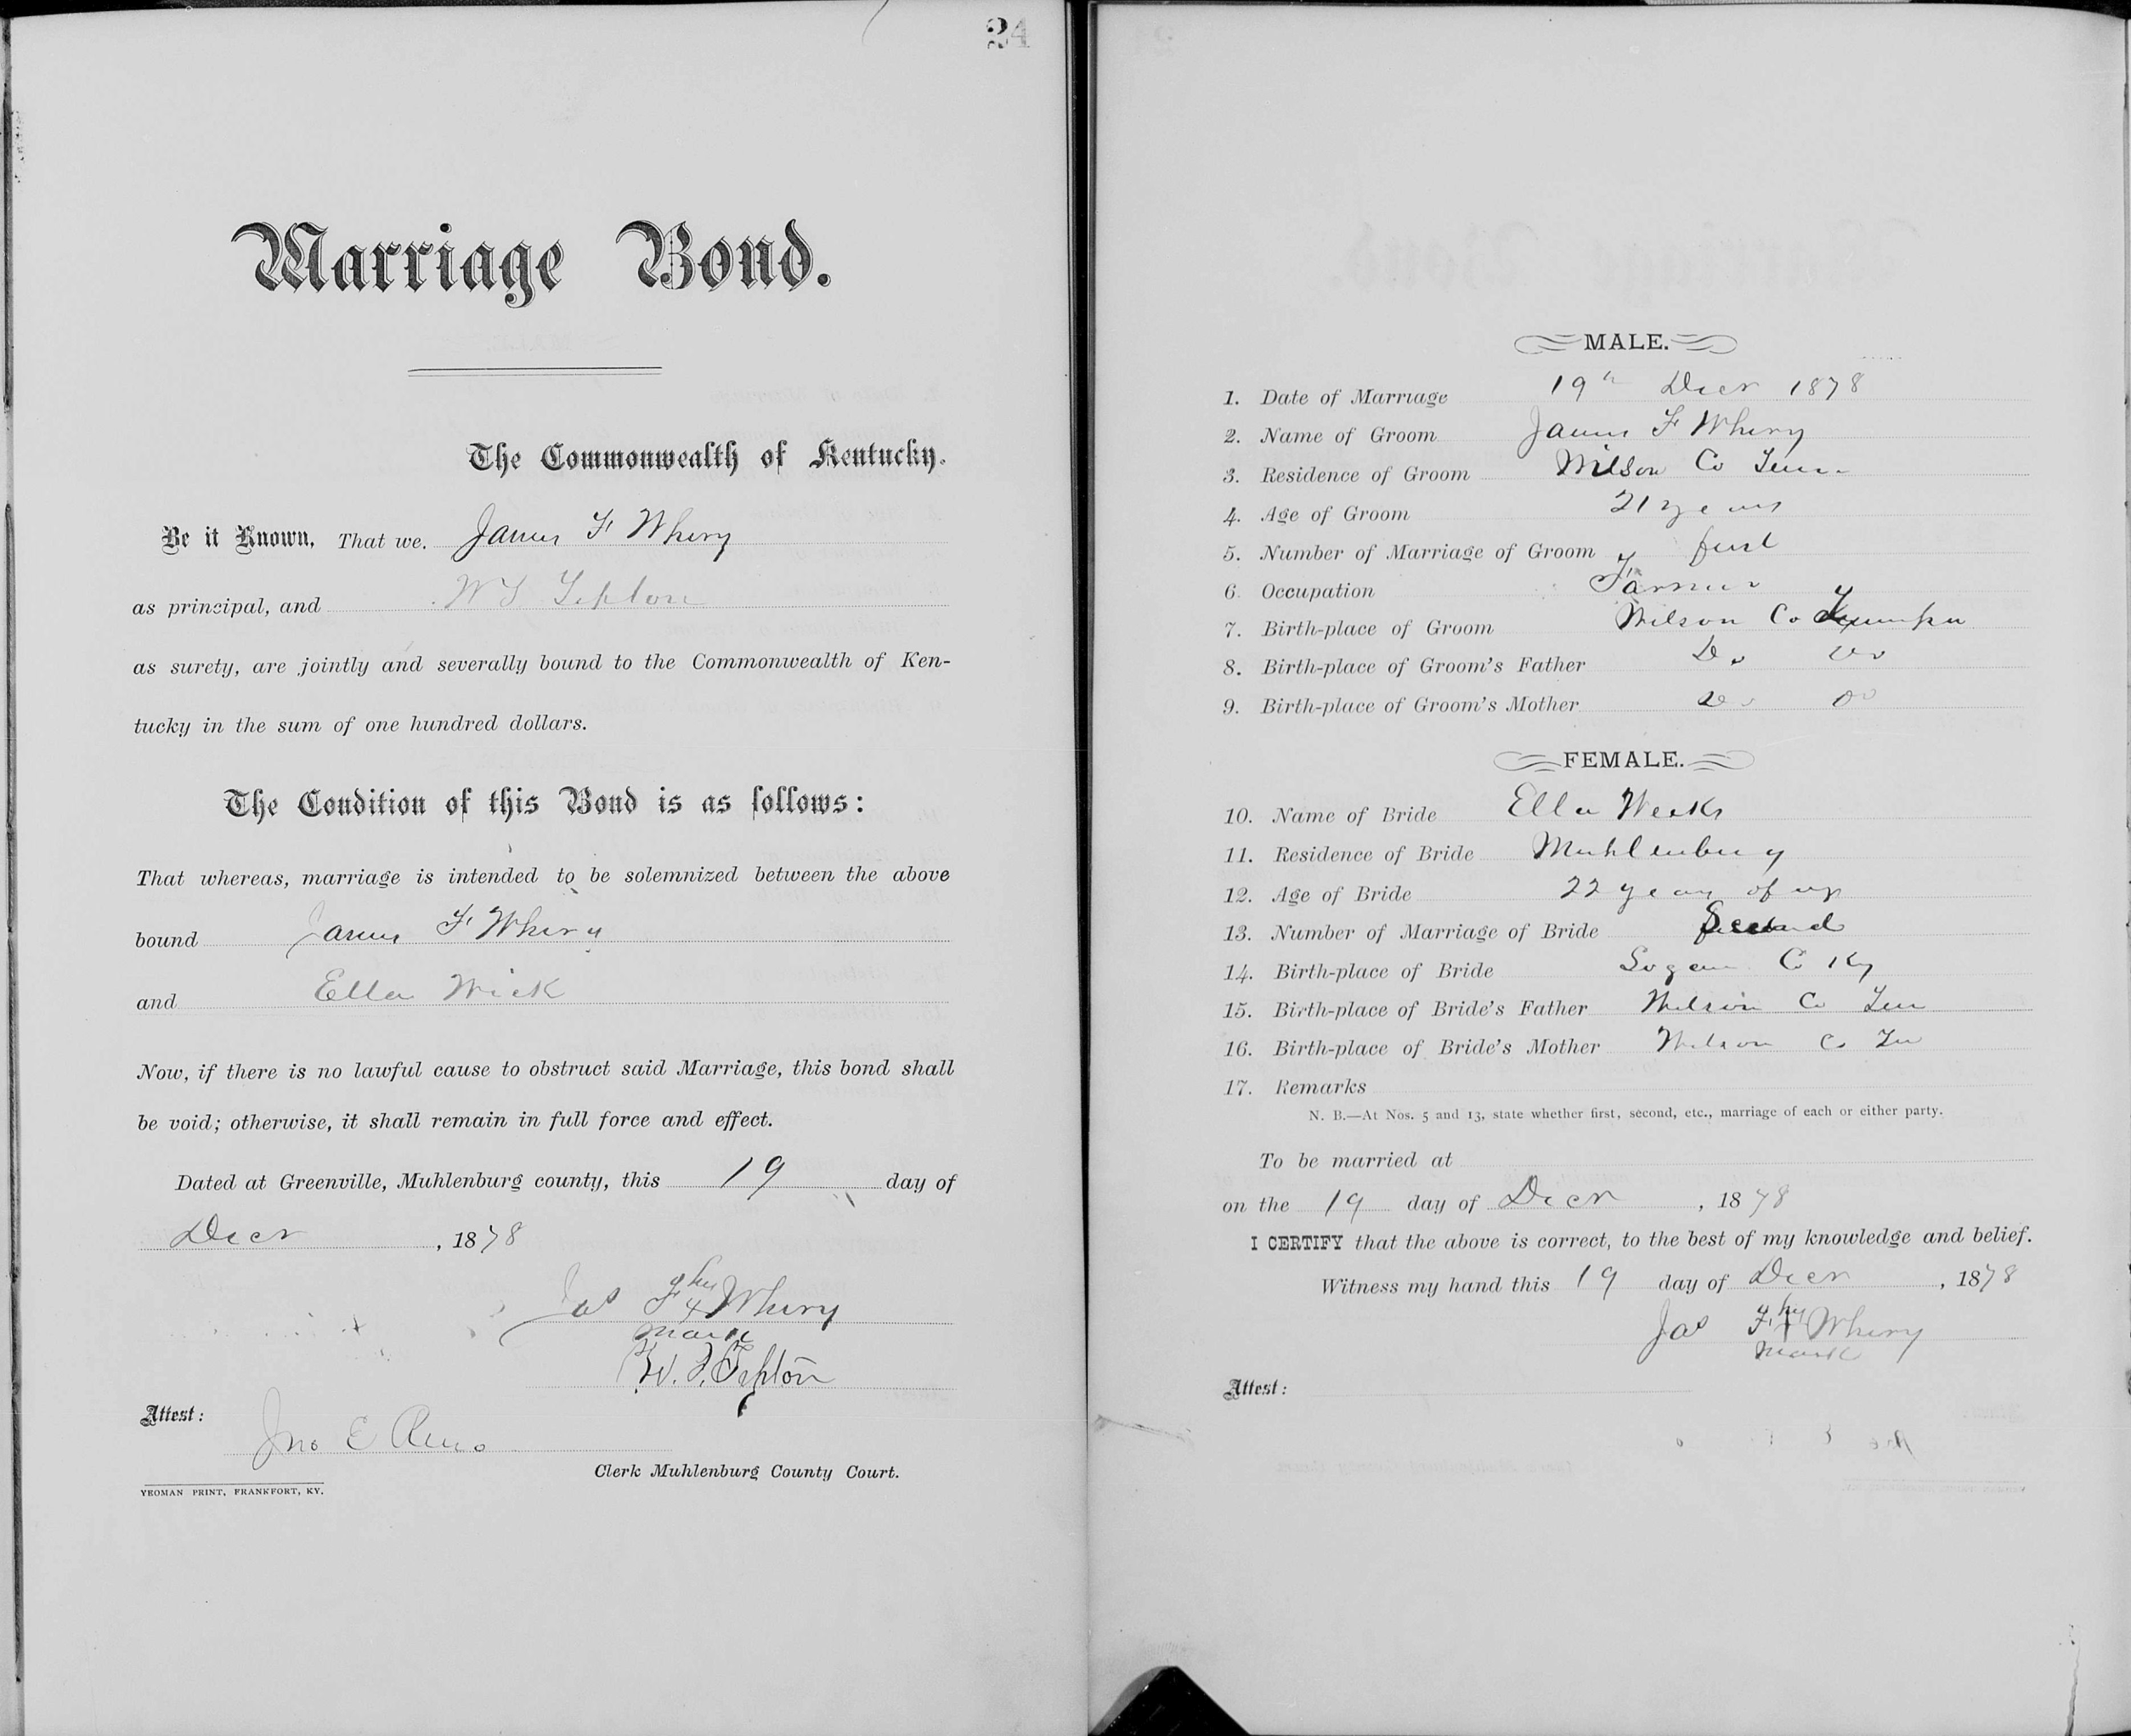 24
Marriage Bond.
The Commonwealth of Kentucky.
Be it Known, That we, James F Whery
as principal, and W T Tipton
as surety, are jointly and severally bound to the Commonwealth of Ken-
tucky in the sum of one hundred dollars.
The Condition of this Bond is as follows:
That whereas, marriage is intended to be solemnized between the above
bound James F Whery
and Ella Wick
Now, if there is no lawful cause to obstruct said Marriage, this bond shall
be void; otherwise, it shall remain in full force and effect.
Dated at Greenville, Muhlenburg county, this 19 day of
Decr, 1878
his
Jas F x Whery
mark
Tipton
Attest:
Jno E Reno
Clerk Muhlenburg County Court.
YEOMAN PRINT, FRANKFORT, KY.
MALE.
1. Date of Marriage 19th Decr 1878
2. Name of Groom James F Whery
3. Residence of Groom Wilson Co Tenn
4. Age of Groom 21 years
5. Number of Marriage of Groom first
6. Occupation Farmer
7. Birth-place of Groom Wilson Co
8. Birth-place of Groom's Father Do Do
9. Birth-place of Groom's Mother Do Do
FEMALE.
10. Name of Bride Ella Weeks
11. Residence of Bride Muhlenburg
12. Age of Bride 22 years of age
13. Number of Marriage of Bride Second
14. Birth-place of Bride Logan Co Ky
15. Birth-place of Bride's Father Wilson Co Ten
16. Birth-place of Bride's Mother Wilson Co Ten
17. Remarks
N. B.—At Nos. 5 and 13, state whether first, second, etc., marriage of each or either party.
To be married at
on the 19 day of Decr, 1878
I CERTIFY that the above is correct, to the best of my knowledge and belief.
Witness my hand this 19 day of Decr, 1878
his
Jas F x Whery
mark
Attest: